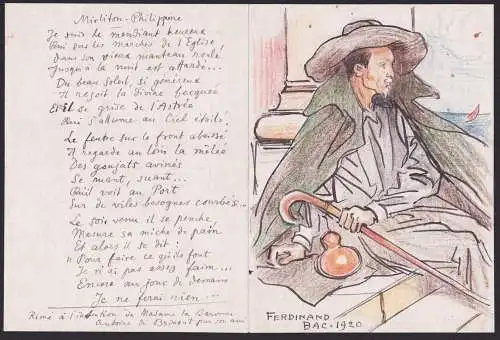 Mirliton-Philippine
Je suis le mendiant heureux
Qui sur les marches de l'Eglise,
Dans son vieux manteau roulé,
Jusqu'à la nuit est attardé...
Du beau soleil, si généreux
Il reçoit la divine becquée
Et il se grise de l'Astrée
Qui s'allume au Ciel étoilé!
Le feutre sur le front abaissé
Il regarde au loin la mêlée
Des goujats avinés
Se muant, suant...
Qu'il voit au Port
Sur de viles besognes courbés...
Le soir venu il se penche,
Mesure sa miche de pain
Et alors il se dit:
"Pour faire ce qu'ils font
Je n'ai pas assez faim...
Encore au jour de demain
Je ne ferai rien...
Rimé à l'intention de Madame la Baronne
Antoine de Brimont par son ami
FERDINAND
BAC-1920